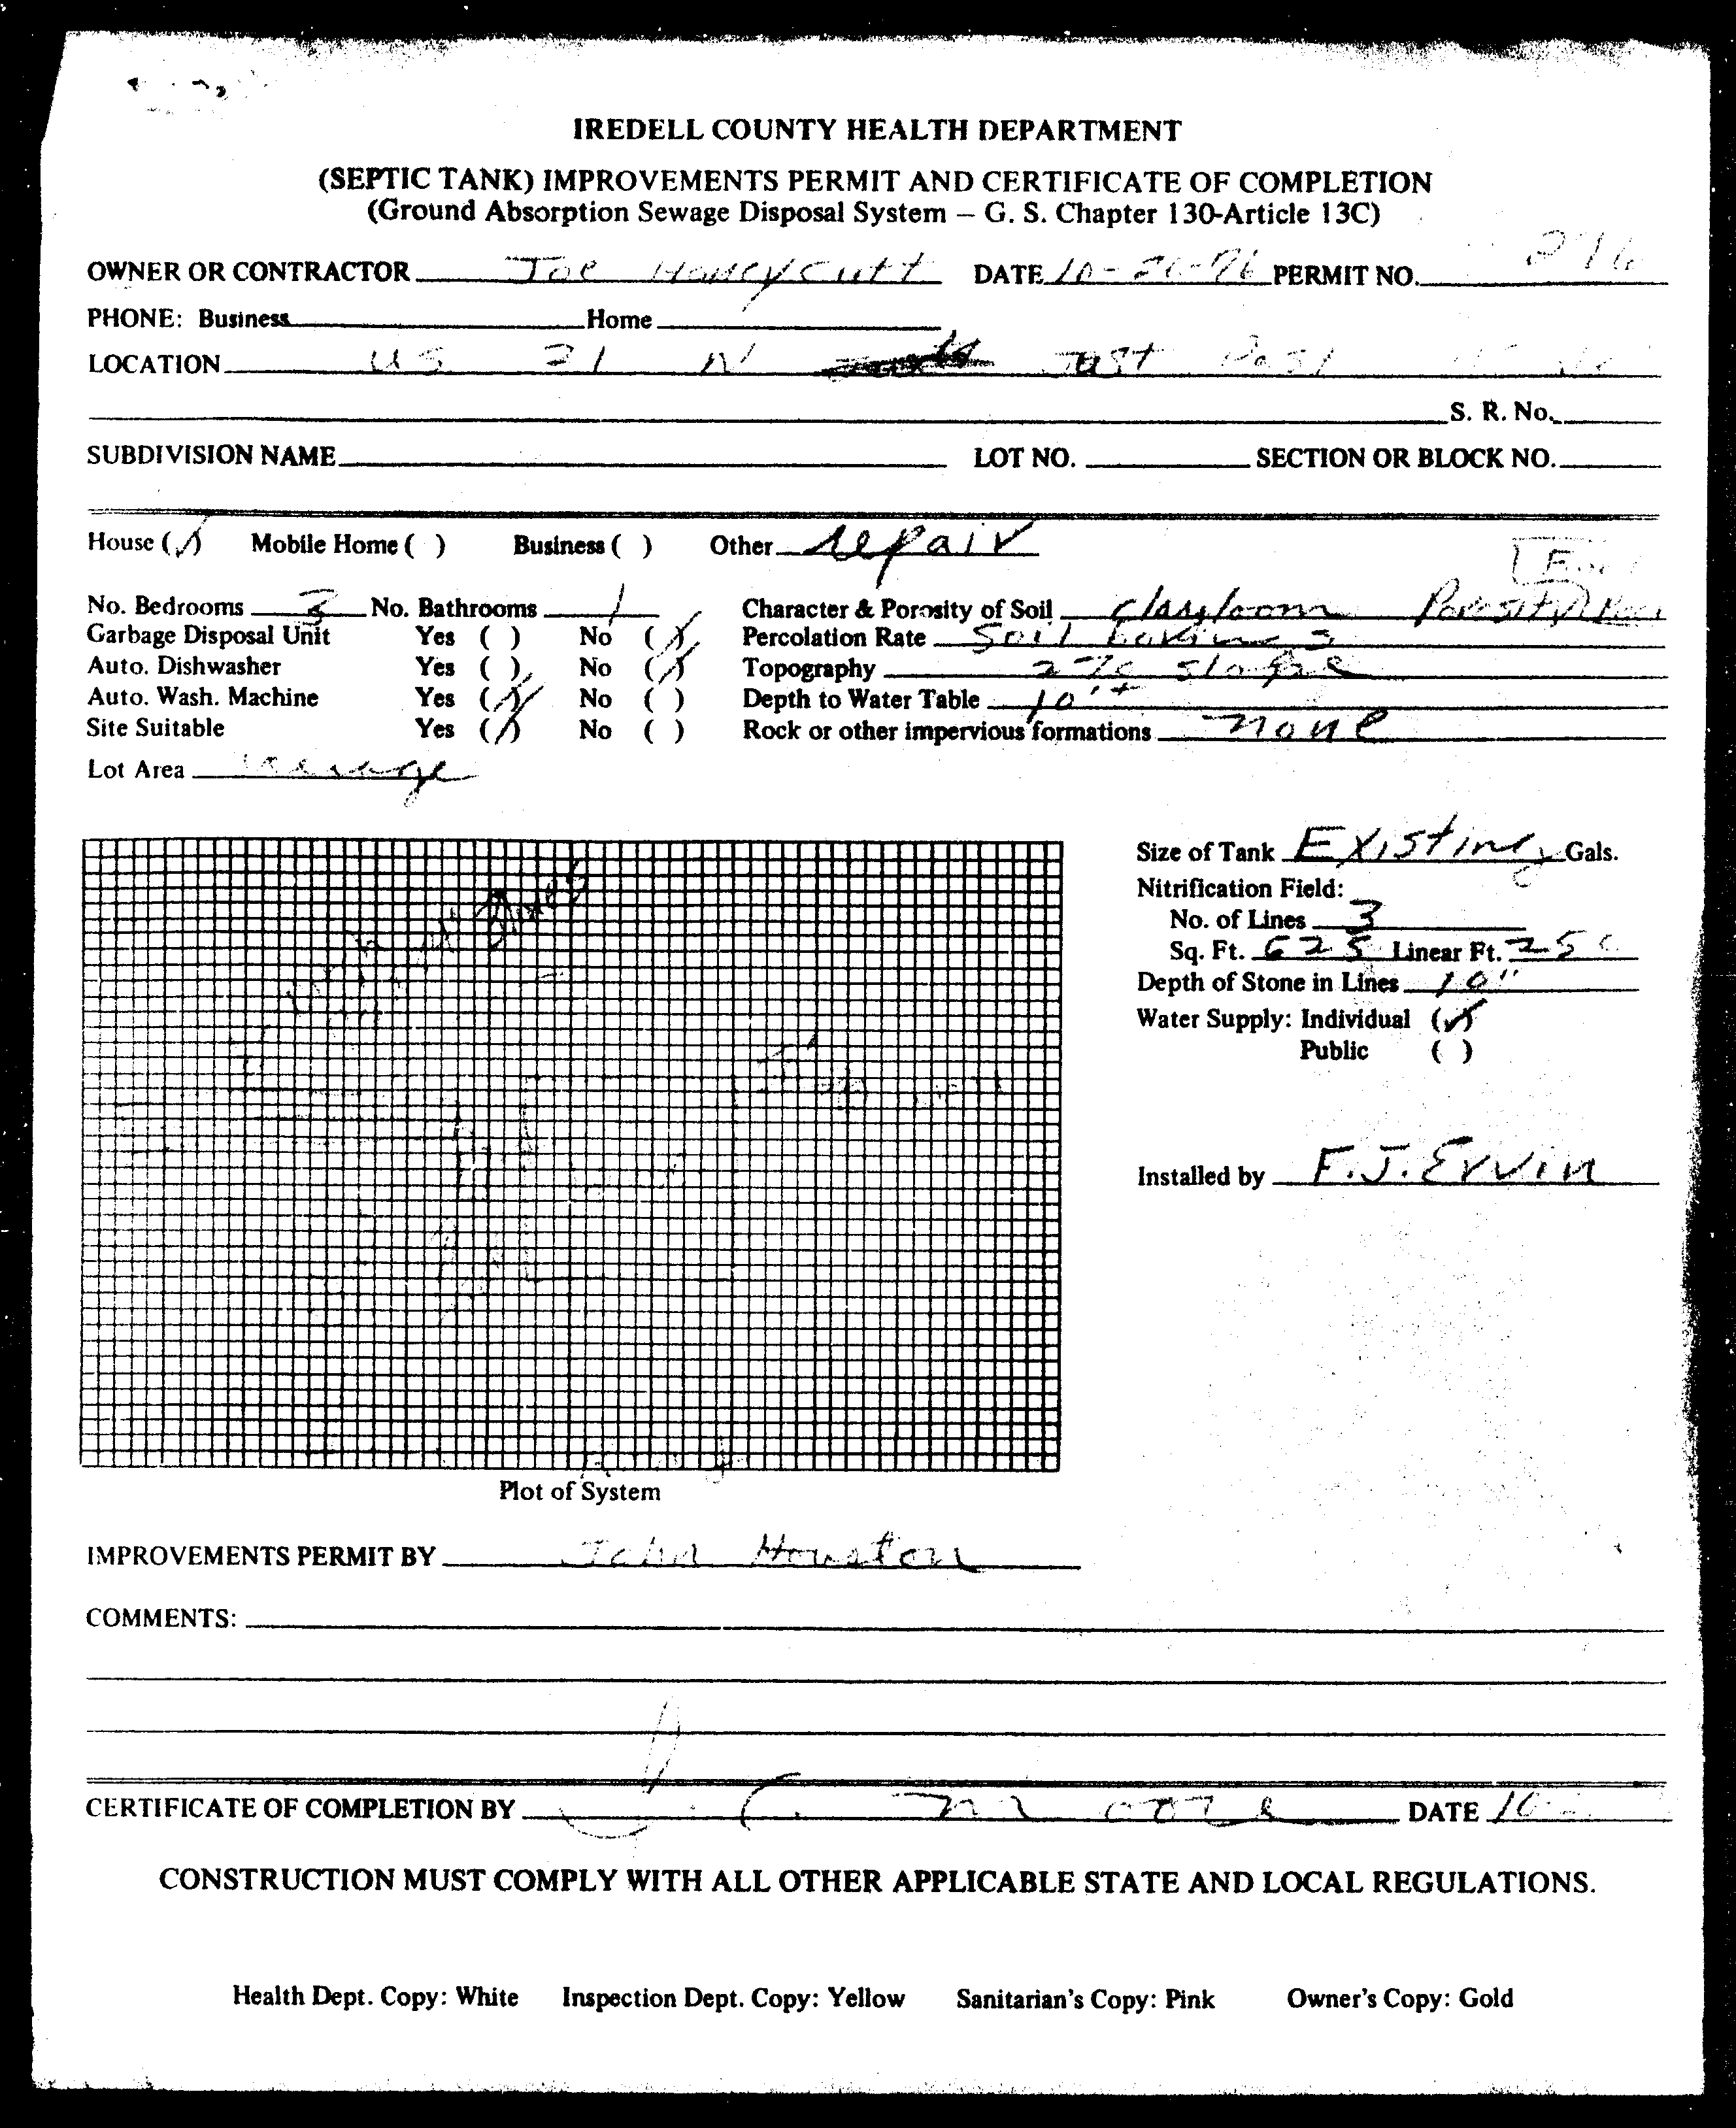 IREDELL COUNTY HEALTH DEPARTMENT
(SEPTIC TANK) IMPROVEMENTS PERMIT AND CERTIFICATE OF COMPLETION
(Ground Absorption Sewage Disposal System – G. S. Chapter 130-Article 13C)
OWNER OR CONTRACTOR Joe Honeycutt DATE PERMIT NO.
PHONE: Business Home
LOCATION US 21 N Just Past
S. R. No.
SUBDIVISION NAME LOT NO. SECTION OR BLOCK NO.
House (✓) Mobile Home ( ) Business ( ) Other repair
No. Bedrooms 3 No. Bathrooms 1 Character & Porosity of Soil clayloom Porosity
Garbage Disposal Unit Yes ( ) No (✓) Percolation Rate Soil borings
Auto. Dishwasher Yes ( ) No (✓) Topography 2% slope
Auto. Wash. Machine Yes (✓) No ( ) Depth to Water Table 10'+
Site Suitable Yes (✓) No ( ) Rock or other impervious formations none
Lot Area
Size of Tank Existing Gals.
Nitrification Field:
No. of Lines 3
Sq. Ft. 625 Linear Ft. 250
Depth of Stone in Lines 10"
Water Supply: Individual (✓)
Public ( )
Installed by F.J. Ervin
Plot of System
IMPROVEMENTS PERMIT BY John Houston
COMMENTS:
CERTIFICATE OF COMPLETION BY J. C. Moore DATE 10
CONSTRUCTION MUST COMPLY WITH ALL OTHER APPLICABLE STATE AND LOCAL REGULATIONS.
Health Dept. Copy: White Inspection Dept. Copy: Yellow Sanitarian's Copy: Pink Owner's Copy: Gold